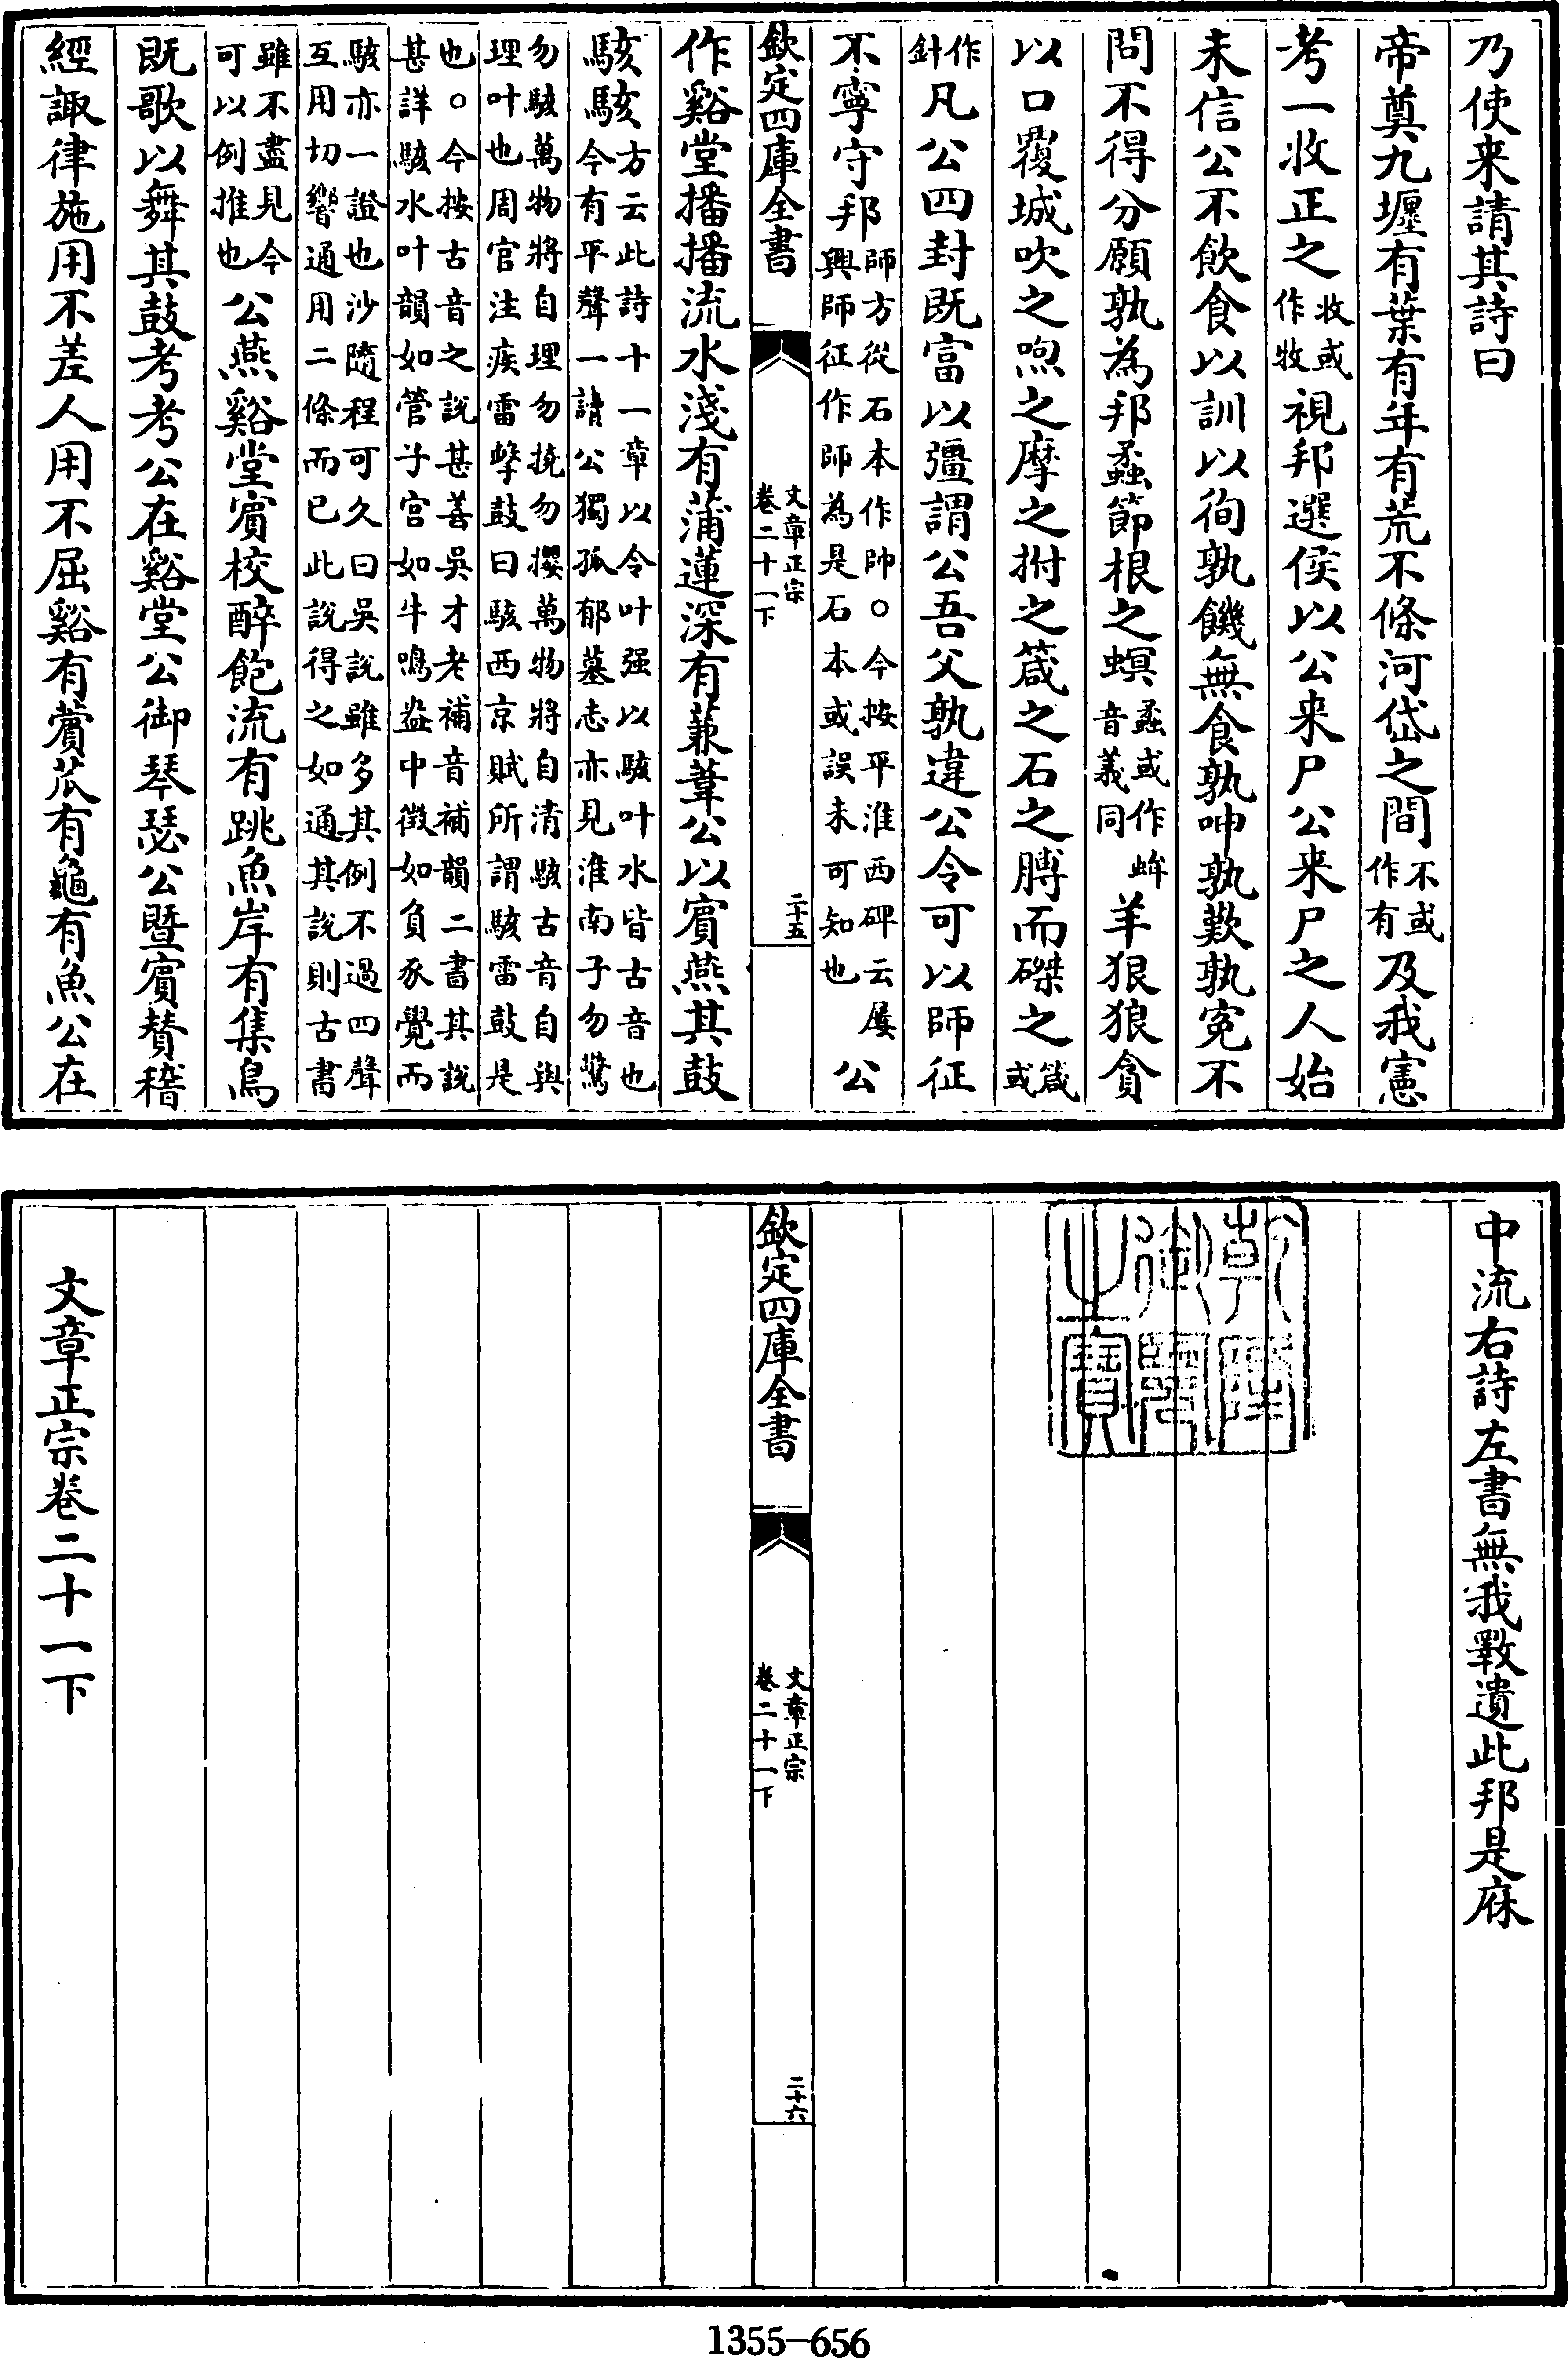 乃使来請其詩曰
帝奠九壥有葉有年有荒不條河岱之間不或作有及我憲
考一收正之收或作牧視邦選侯以公来尸公来尸之人始
未信公不飲食以訓以徇孰饑無食孰呻孰歎孰寃不
問不得分願孰為邦蟊節根之螟蟊或作蛑音義同羊狠狼貪
以口覆城吹之喣之摩之拊之箴之石之膊而磔之箴或
作針凡公四封既富以彊謂公吾父孰違公令可以師征
不寧守邦師方從石本作帥○今按平淮西碑云屢興師征作師為是石本或誤未可知也公
欽定四庫全書
文章正宗
卷二十一下
二十五
作谿堂播播流水淺有蒲蓮深有蒹葦公以賓燕其鼓
駭駭方云此詩十一章以令叶强以駭叶水皆古音也今有平聲一讀公獨孤郁墓志亦見淮南子勿驚
勿駭萬物將自理勿撓勿攖萬物將自清駭古音自與理叶也周官注疾雷擊鼓曰駭西京賦所謂駭雷鼓是
也○今按古音之説甚善吳才老補音補韻二書其説甚詳駭水叶韻如管子宫如牛鳴盎中徵如負豕覺而
駭亦一證也沙隨程可久曰吳説雖多其例不過四聲互用切響通用二條而已此説得之如通其説則古書
雖不盡見今可以例推也公燕谿堂賓校醉飽流有跳魚岸有集鳥
既歌以舞其鼓考考公在谿堂公御琴瑟公暨賓賛稽
經諏律施用不差人用不屈谿有薲苽有龜有魚公在
中流右詩左書無我斁遺此邦是庥
乾隆御覽之寶
欽定四庫全書
文章正宗
卷二十一下
二十六
文章正宗卷二十一下
1355-656